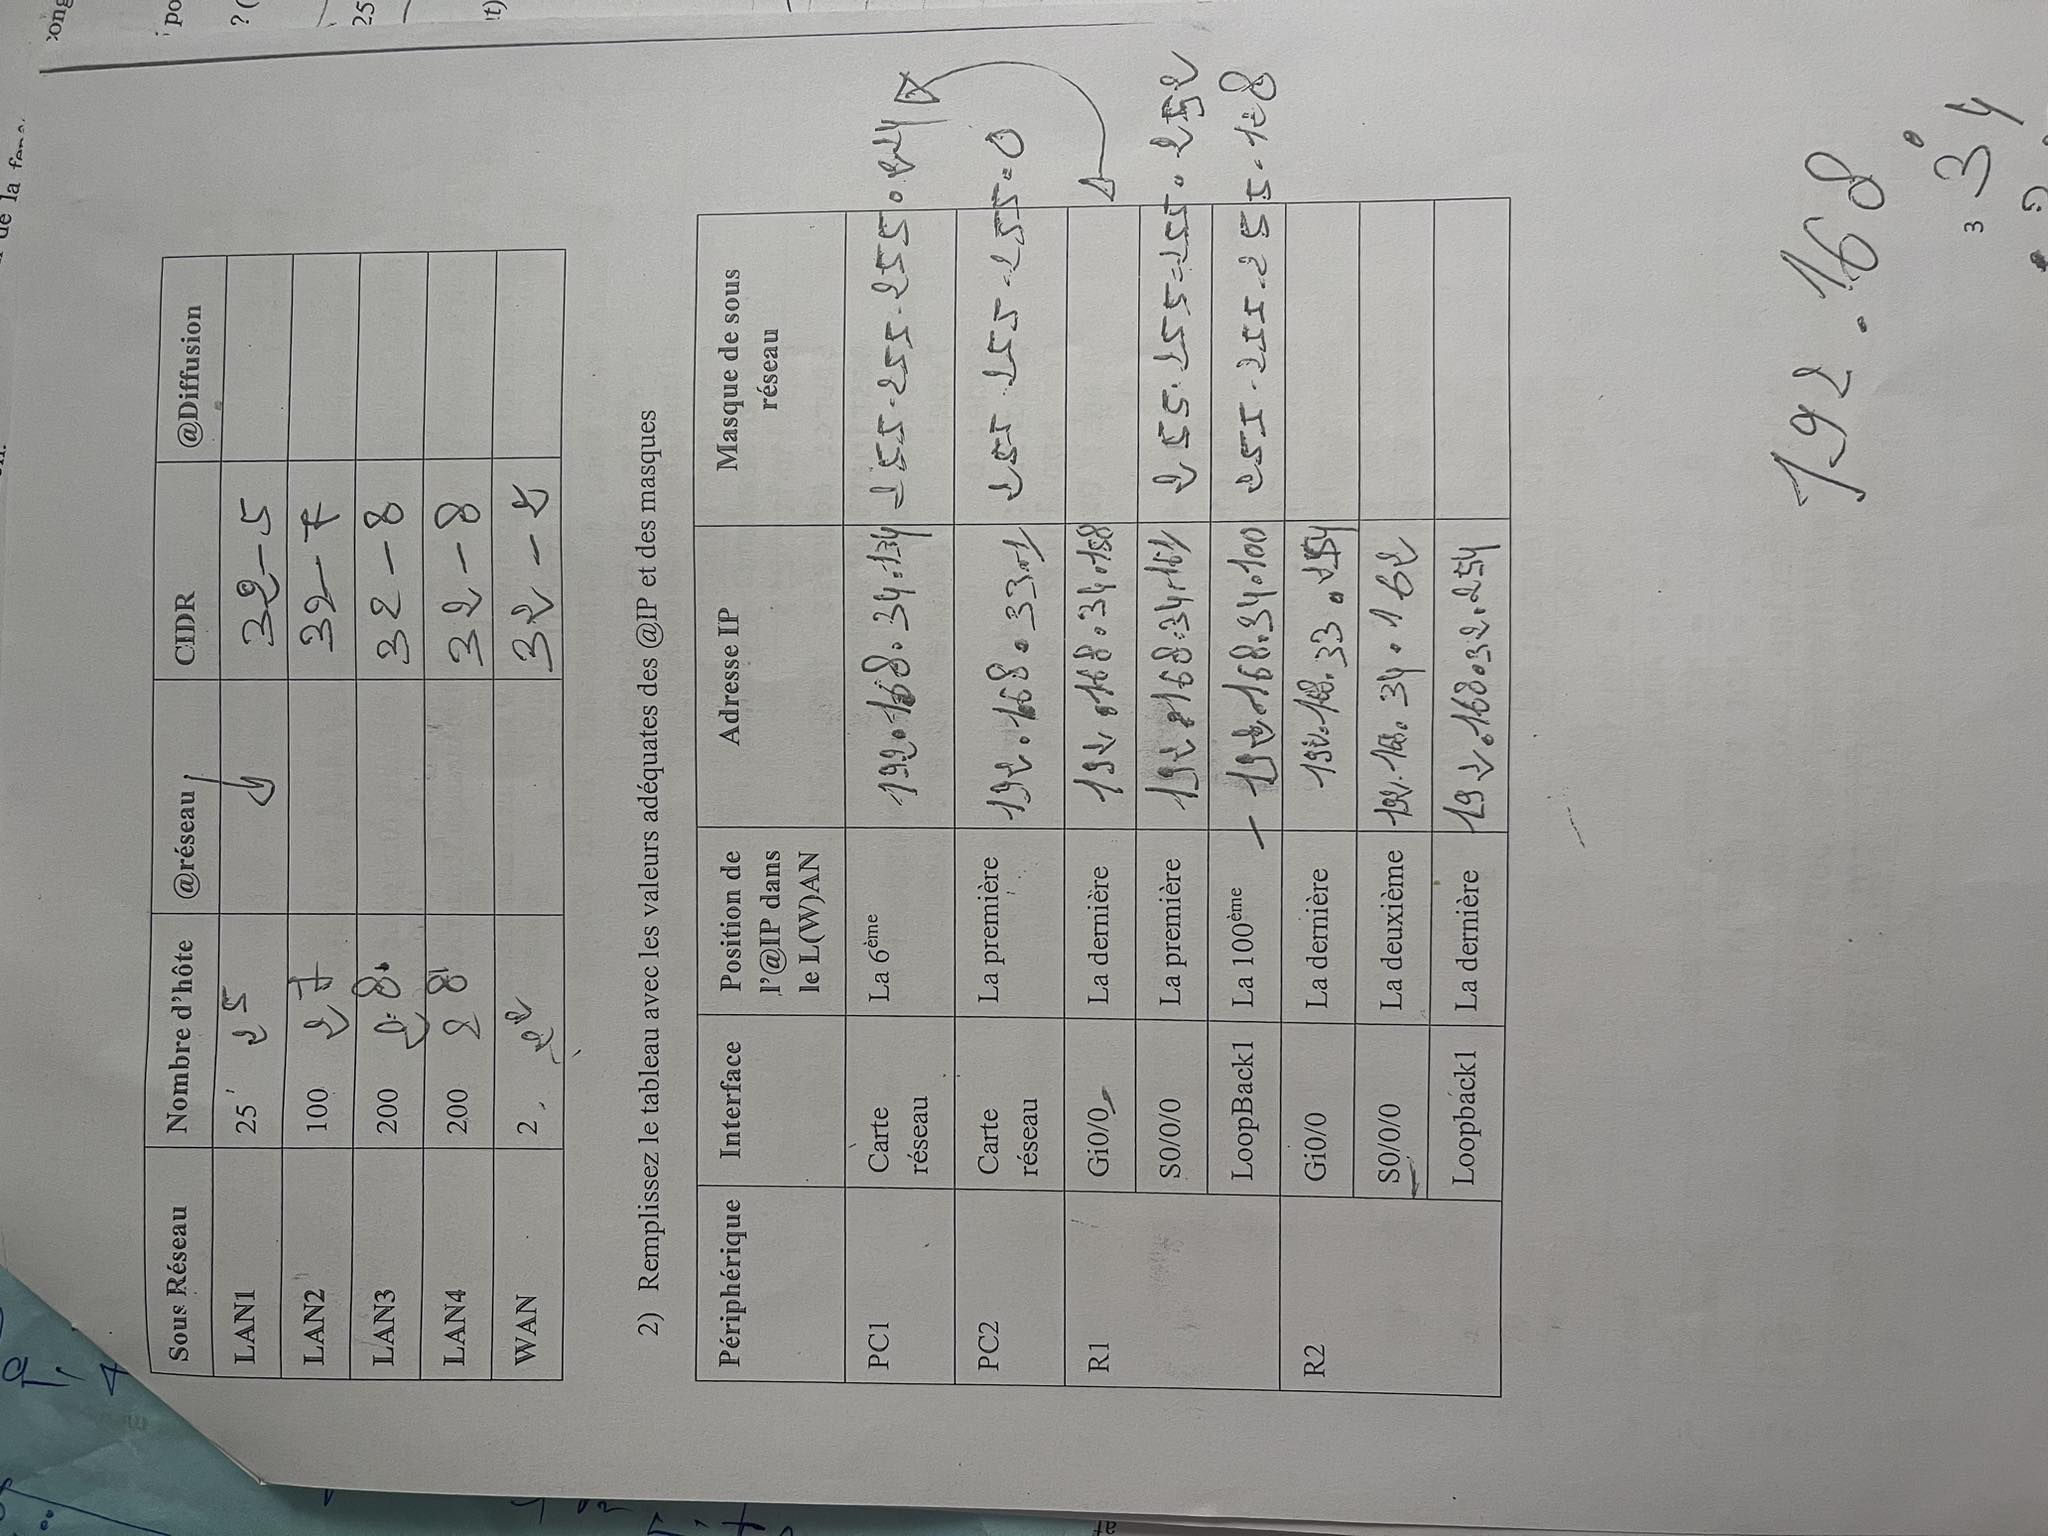 de la fenê
cong
Sous Réseau Nombre d'hôte @réseau CIDR @Diffusion
LAN1 25 2 5 32-5
LAN2 100 2 7 32-7
LAN3 200 2 8 32-8
LAN4 200 2 8 32-8
WAN 2 2 2 32-2
po
? (
25
t)
2) Remplissez le tableau avec les valeurs adéquates des @IP et des masques
Périphérique Interface Position de l'@IP dans le L(W)AN Adresse IP Masque de sous réseau
PC1 Carte réseau La 6ème 192.168.34.134 255.255.255.224
PC2 Carte réseau La première 192.168.33.1 255.255.255.0
R1 Gi0/0 La dernière 192.168.34.158
S0/0/0 La première 192.168.34.161 255.255.255.252
LoopBack1 La 100ème 192.168.34.100 255.255.255.128
R2 Gi0/0 La dernière 192.168.33.254
S0/0/0 La deuxième 192.168.34.162
Loopback1 La dernière 192.168.32.254
192.168
.
3 34